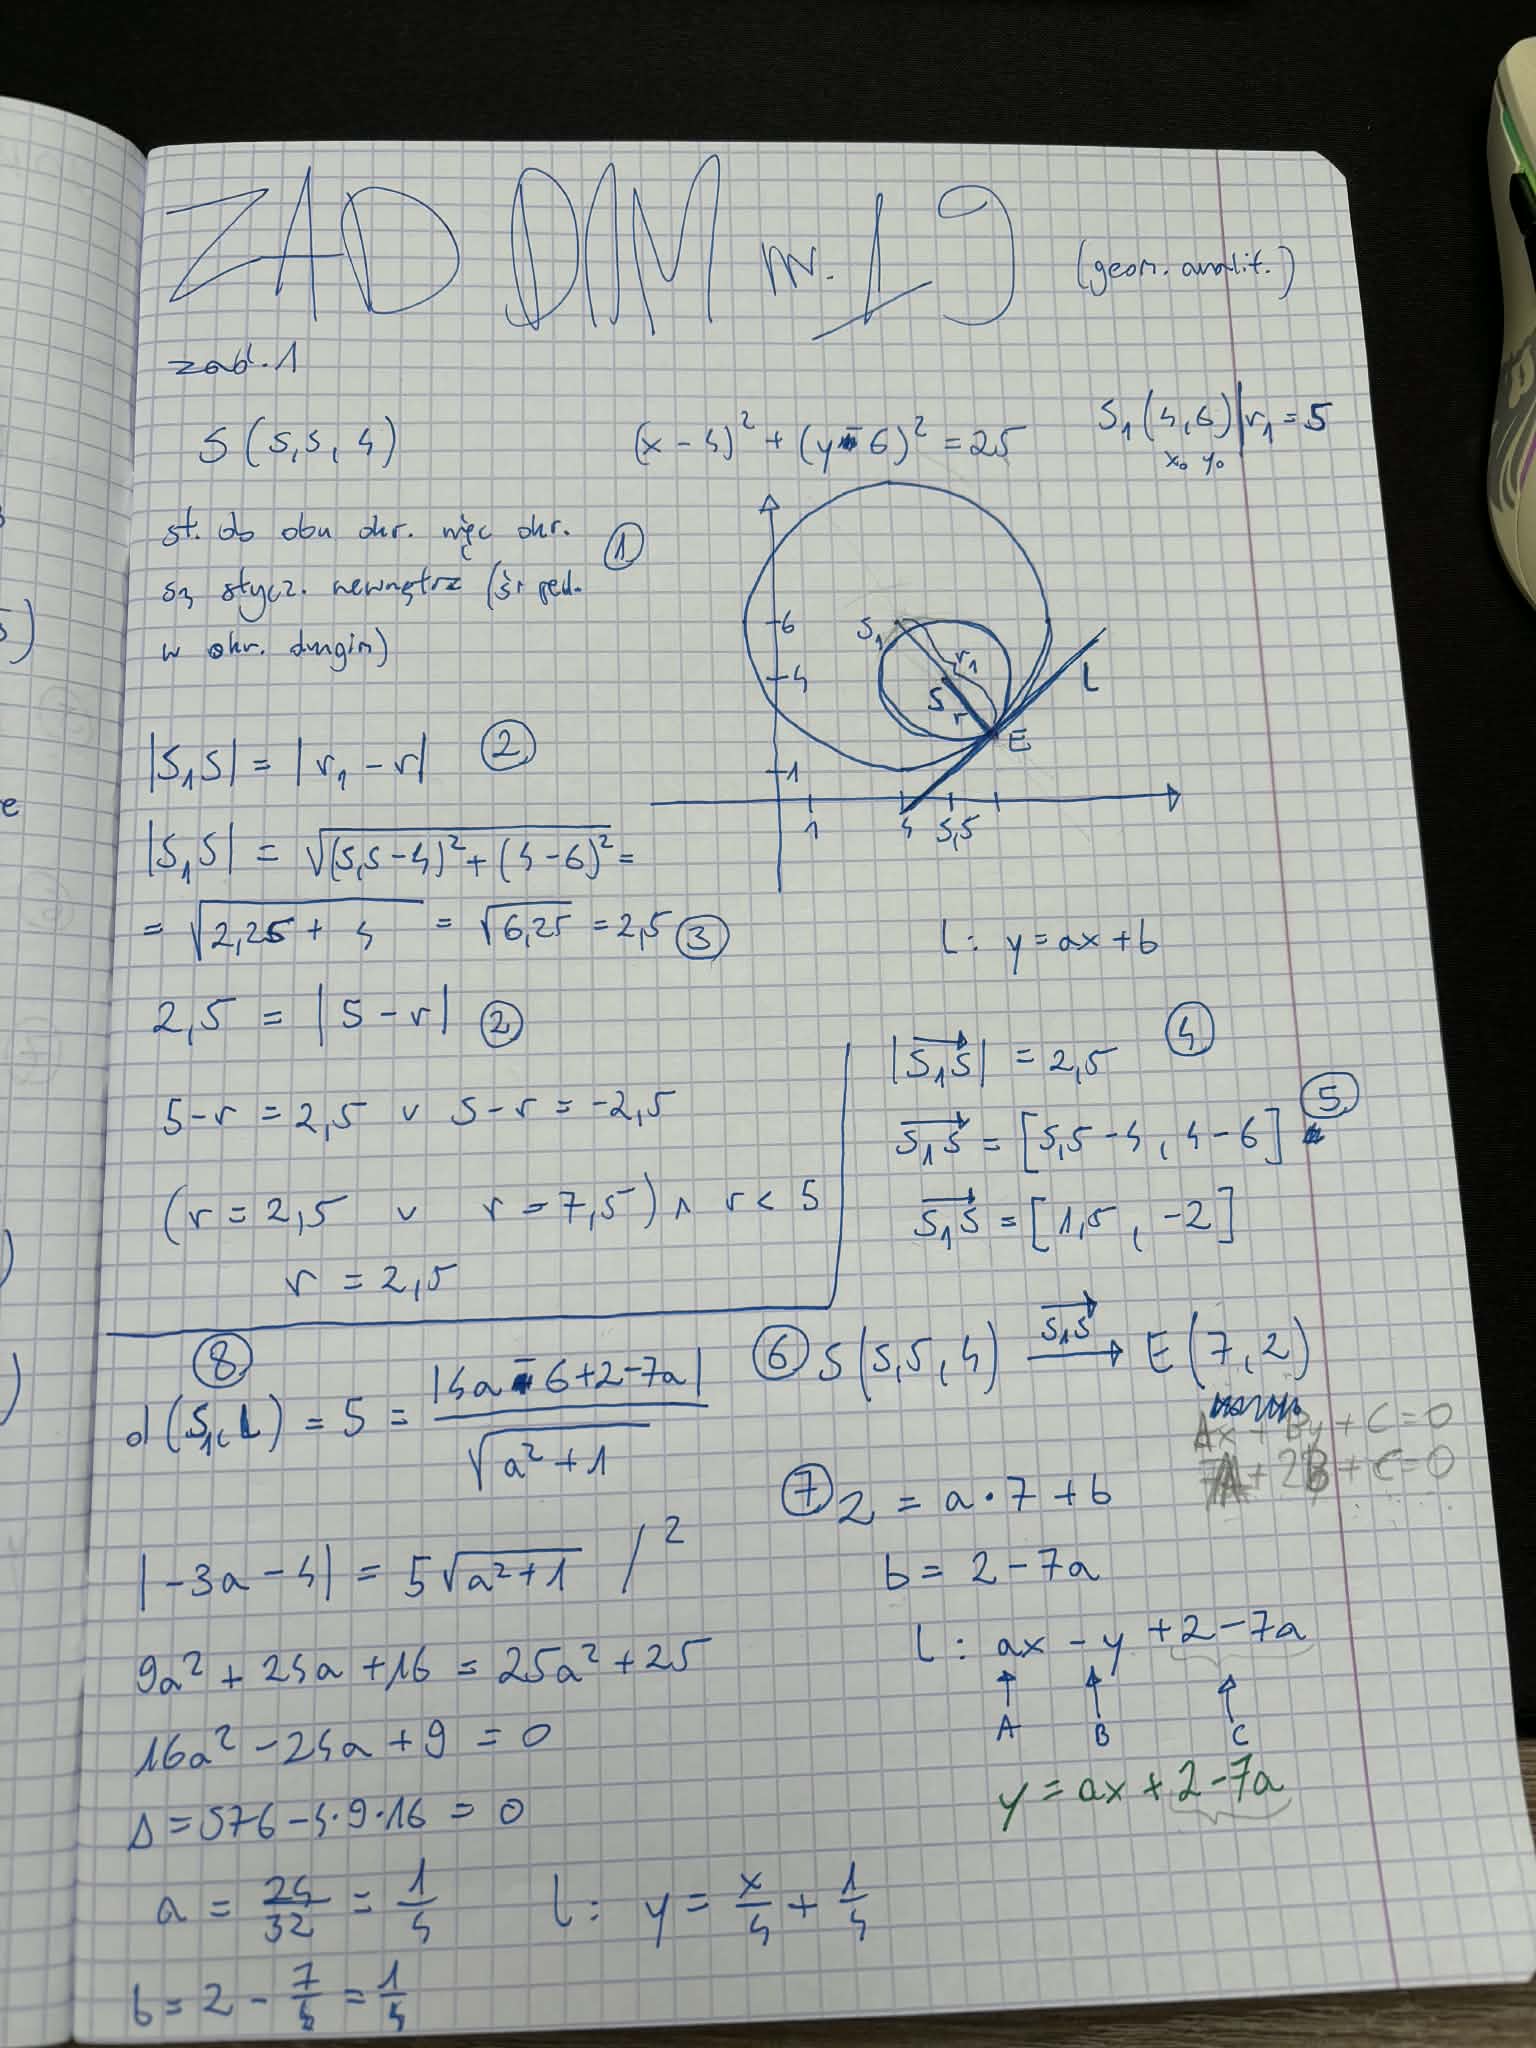 ZAD DOM nr. 19 (geom. analit.)
zad. 1
S(5,5, 4)
(x - 4)² + (y - 6)² = 25
S₁(4,6) | r₁ = 5
x₀ y₀
st. do obu okr. więc okr. ①
są stycz. wewnątrz (śr
w okr. drugim)
6
4
1
1 4 5,5
S₁
r₁
S
r
E
l
|S₁S| = |r₁ - r| ②
|S₁S| = √((5,5-4)² + (4-6)²) =
= √(2,25 + 4) = √6,25 = 2,5 ③
2,5 = |5 - r| ②
5 - r = 2,5 v 5 - r = -2,5
(r = 2,5 v r = 7,5) ∧ r < 5
r = 2,5
l: y = ax + b
|S₁S→| = 2,5 ④
S₁S→ = [5,5 - 4, 4 - 6] ⑤
S₁S→ = [1,5, -2]
⑥ S(5,5, 4) —S₁S→→ E(7, 2)
Ax + By + C = 0
7A + 2B + C = 0
⑦ 2 = a·7 + b
b = 2 - 7a
l: ax - y + 2 - 7a
A B C
y = ax + 2 - 7a
⑧
d(S₁, l) = 5 = |4a - 6 + 2 - 7a| / √(a² + 1)
|-3a - 4| = 5√(a² + 1) /²
9a² + 24a + 16 = 25a² + 25
16a² - 24a + 9 = 0
Δ = 576 - 4·9·16 = 0
a = 24/32 = 1/4
l: y = x/4 + 1/4
b = 2 - 7/4 = 1/4